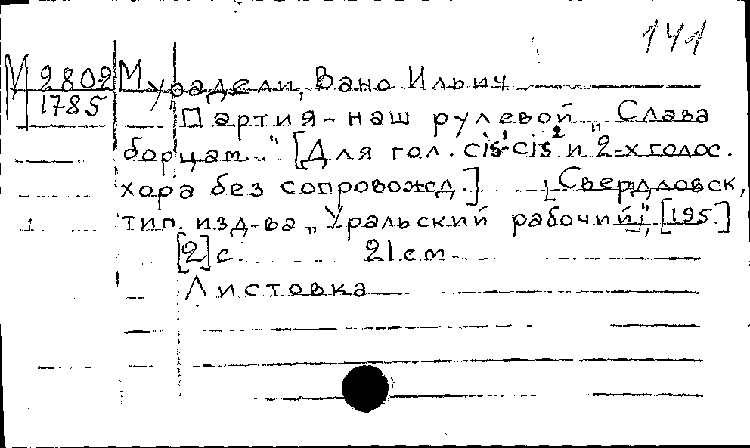 141
М 2802 Мурадели, Вано Ильич
1785
Партия - наш рулевой „Слава
борцам..." [Для гол. cis¹-cis² и 2-х голос.
хора без сопровожд.] [Свердловск,
тип. изд-ва „Уральский рабочий", [195.]
[2] с. 21 см.
Листовка